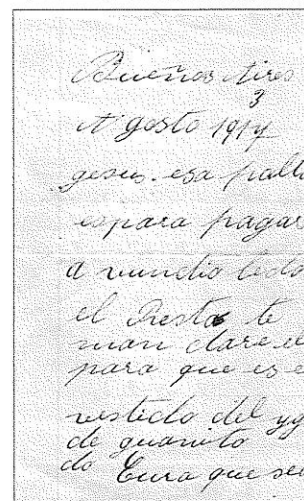 Buenos Aires
3
Agosto 1914
gesus esa
espara pagar
a
el Resto te
man dare el
para que es e
vestido del
de guanito
do Cura que se